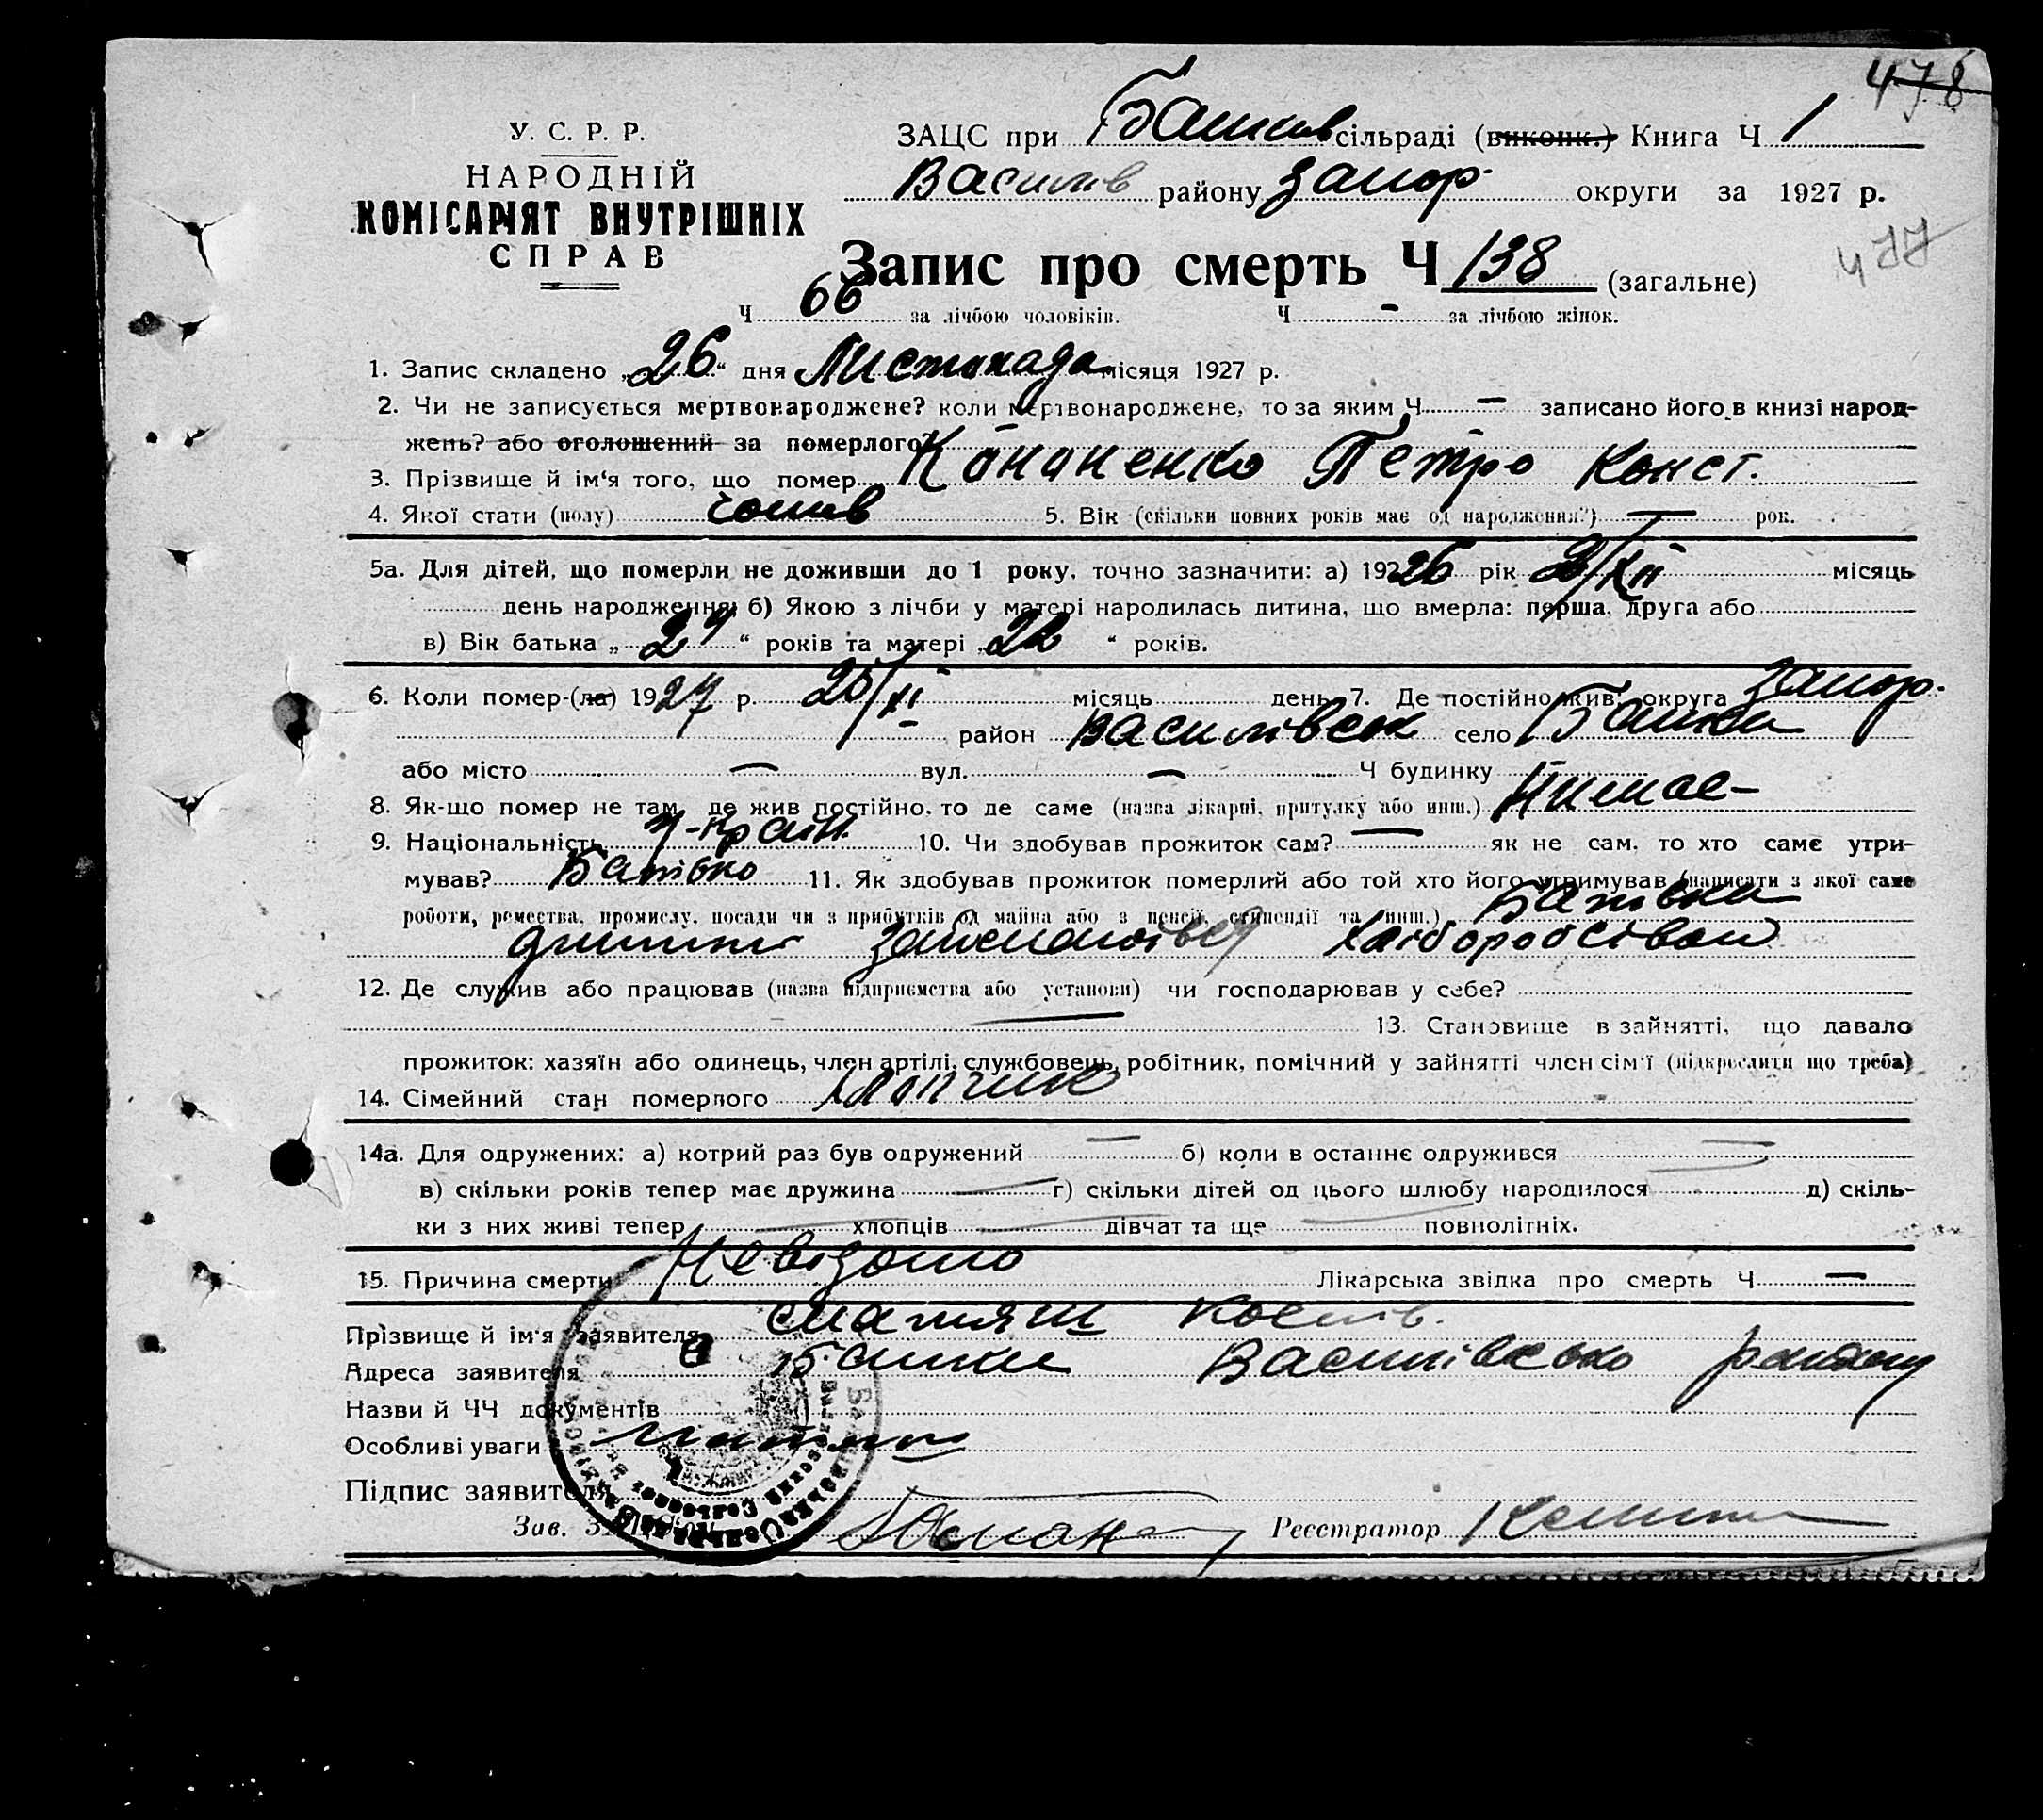 478
У. С. Р. Р.
НАРОДНІЙ
КОМІСАРІЯТ ВНУТРІШНІХ
СПРАВ
ЗАЦС при Башків сільраді (виконк.) Книга Ч 1
Василів району Запор. округи за 1927 р.
477
Запис про смерть Ч 138 (загальне)
Ч 66 за лічбою чоловіків. Ч - за лічбою жінок.
1. Запис складено „26“ дня Листопада місяця 1927 р.
2. Чи не записується мертвонароджене? коли мертвонароджене, то за яким Ч — записано його в книзі народ-
жень? або оголошений за померлого?
3. Прізвище й ім'я того, що помер Кононенко Петро Конст.
4. Якої стати (полу) чолов 5. Вік (скільки повних років має од народження?) — рок.
5а. Для дітей, що померли не доживши до 1 року, точно зазначити: а) 1926 рік /XII місяць
день народження; б) Якою з лічби у матері народилась дитина, що вмерла: перша, друга або
в) Вік батька „24“ років та матері „22“ років.
6. Коли помер-(ла) 1927 р. 25/XI місяць день 7. Де постійно жив: округа Запор.
район Василівськ село
або місто — вул. — Ч будинку
8. Як-що помер не там, де жив постійно, то де саме (назва лікарні, притулку або инш.) Немає
9. Національність Україн. 10. Чи здобував прожиток сам? — як не сам, то хто саме утри-
мував? Батько 11. Як здобував прожиток померлий або той хто його утримував (написати з якої саме
роботи, ремества, промислу, посади чи з прибутків од майна або з пенсії, стипендії та инш.) Батьки
дитини Хліборобством
12. Де служив або працював (назва підприємства або установи) чи господарював у себе?
— 13. Становище в зайнятті, що давало
прожиток: хазяїн або одинець, член артілі, службовець, робітник, помічний у зайнятті член сім'ї (підкреслити що треба)
14. Сімейний стан померлого хлопчик
14а. Для одружених: а) котрий раз був одружений — б) коли в останнє одружився —
в) скільки років тепер має дружина — г) скільки дітей од цього шлюбу народилося — д) скіль-
ки з них живі тепер — хлопців — дівчат та ще — повнолітніх.
15. Причина смерти Невідомо Лікарська звідка про смерть Ч —
Прізвище й ім'я заявителя
Адреса заявителя Василівсько району
Назви й ЧЧ документів
Особливі уваги
Підпис заявителя
Зав. Реєстратор